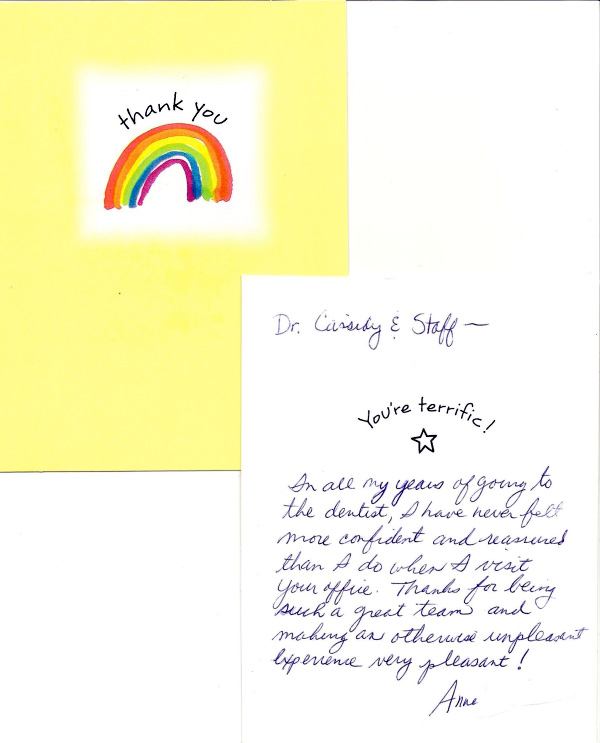 thank you
Dr. Cassidy & Staff —
You're terrific!
In all my years of going to
the dentist, I have never felt
more confident and reassured
than I do when I visit
your office. Thanks for being
such a great team and
making an otherwise unpleasant
experience very pleasant!
Anne